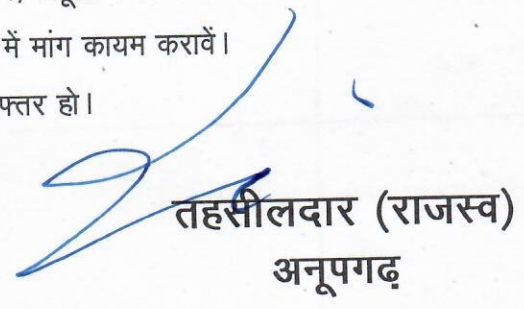 में मांग कायम करावें।
फ्तर हो।
तहसीलदार (राजस्व)
अनूपगढ़